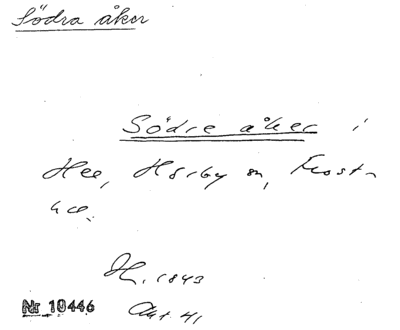 Södra åker
Södre åker i
Hee, Hörby sn, Frost-
H. 1843
Akt. 41
Nr 10446